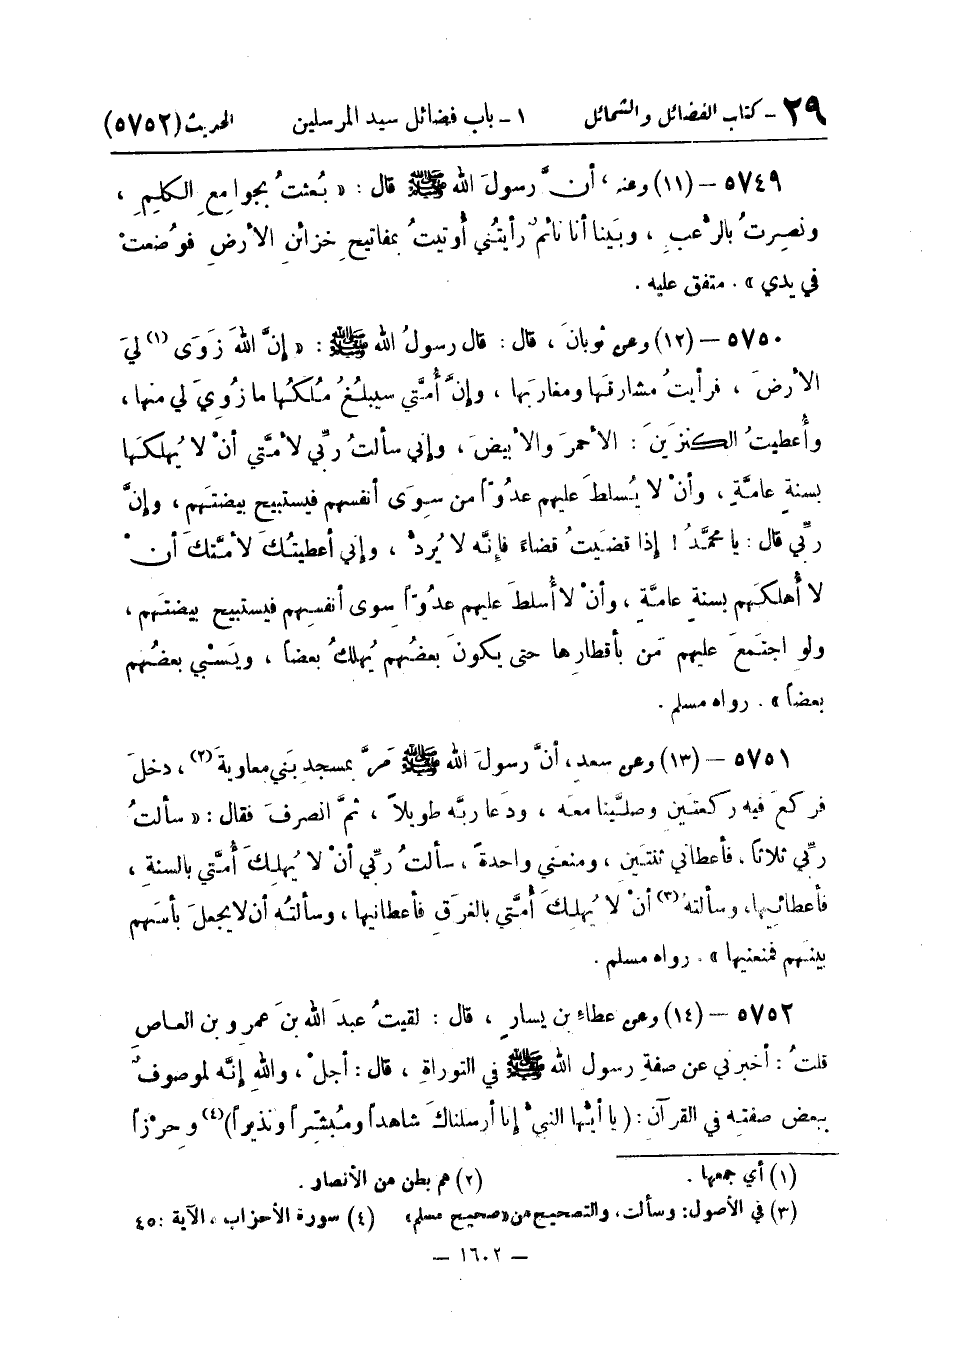 ٢٩ - كتاب الفضائل والشمائل ١ - باب فضائل سيد المرسلين الحديث (٥٧٥٢)
٥٧٤٩ - (١١) وعنه ، أنَّ رسولَ الله ﷺ قال : « بُعثتُ بجوامعِ الكلِمِ ،
ونصِرتُ بالرُّعبِ ، وبَينا أنا نائمٌ رأيتُني أُوتيتُ بمفاتيحِ خزائنِ الأرضِ فوُضعتْ
في يدي » . متفق عليه .
٥٧٥٠ - (١٢) وعن ثوبانَ ، قال : قال رسولُ الله ﷺ : « إنَّ اللهَ زَوَى (١) ليَ
الأرضَ ، فرأيتُ مشارقَها ومغاربَها ، وإنَّ أُمَّتي سيبلُغُ مُلكُها ما زُوِيَ لي منها ،
وأُعطيتُ الكنزَينَ : الأحمرَ والأبيضَ ، وإني سألتُ ربِّي لأمَّتي أنْ لا يُهلكَها
بسنةٍ عامَّةٍ ، وأنْ لا يُسلطَ عليهم عدُوّاً من سِوَى أنفسهم فيستبيح بيضتَهم ، وإنَّ
ربِّي قال : يا محمَّدُ ! إذا قضَيتُ قضاءً فإنَّه لا يُردُّ ، وإني أعطيتُكَ لأمَّتكَ أنْ
لا أُهلكَهم بسنةٍ عامَّةٍ ، وأنْ لا أُسلطَ عليهم عدُوّاً سِوى أنفسِهم فيستبيح بيضتَهم ،
ولو اجتمَعَ عليهم مَن بأقطارِها حتى يكونَ بعضُهم يُهلكُ بعضاً ، ويَسْبي بعضُهم
بعضاً » . رواه مسلم .
٥٧٥١ - (١٣) وعن سعدٍ، أنَّ رسولَ الله ﷺ مَرَّ بمسجدِ بَني معاويةَ (٢) ، دخلَ
فركعَ فيه ركعتَين وصلَّينا معَه ، ودَعا ربَّه طويلاً ، ثمَّ انصرفَ فقال : « سألتُ
ربِّي ثلاثاً ، فأعطاني ثنتَينِ ، ومنعَني واحدةً ، سألتُ ربِّي أنْ لا يُهلِكَ أُمَّتي بالسنةِ ،
فأعطانيها، وسألتهُ (٣) أنْ لا يُهلِكَ أُمَّتي بالغرَقِ فأعطانيها ، وسألتُه أن لا يجعلَ بأسَهم
بينَهم فمنعنيها » . رواه مسلم .
٥٧٥٢ - (١٤) وعن عطاءِ بن يسارٍ ، قال : لقيتُ عبدَ الله بنَ عمرِو بن العاصِ
قلتُ : أخبرني عن صفةِ رسول الله ﷺ في التوراةِ ، قال : أجلْ ، واللهِ إنَّه لموصوفٌ
ببعض صفتِه في القرآنِ : ( يا أيُّها النبيُّ إنا أرسلناكَ شاهداً ومُبشِّراً ونذيراً) (٤) وحِرْزاً
(١) أي جمعها . (٢) هم بطن من الأنصار .
(٣) في الأصول: وسألت، والتصحيح من «صحيح مسلم» (٤) سورة الأحزاب ، الآية : ٤٥
— ١٦٠٢ —